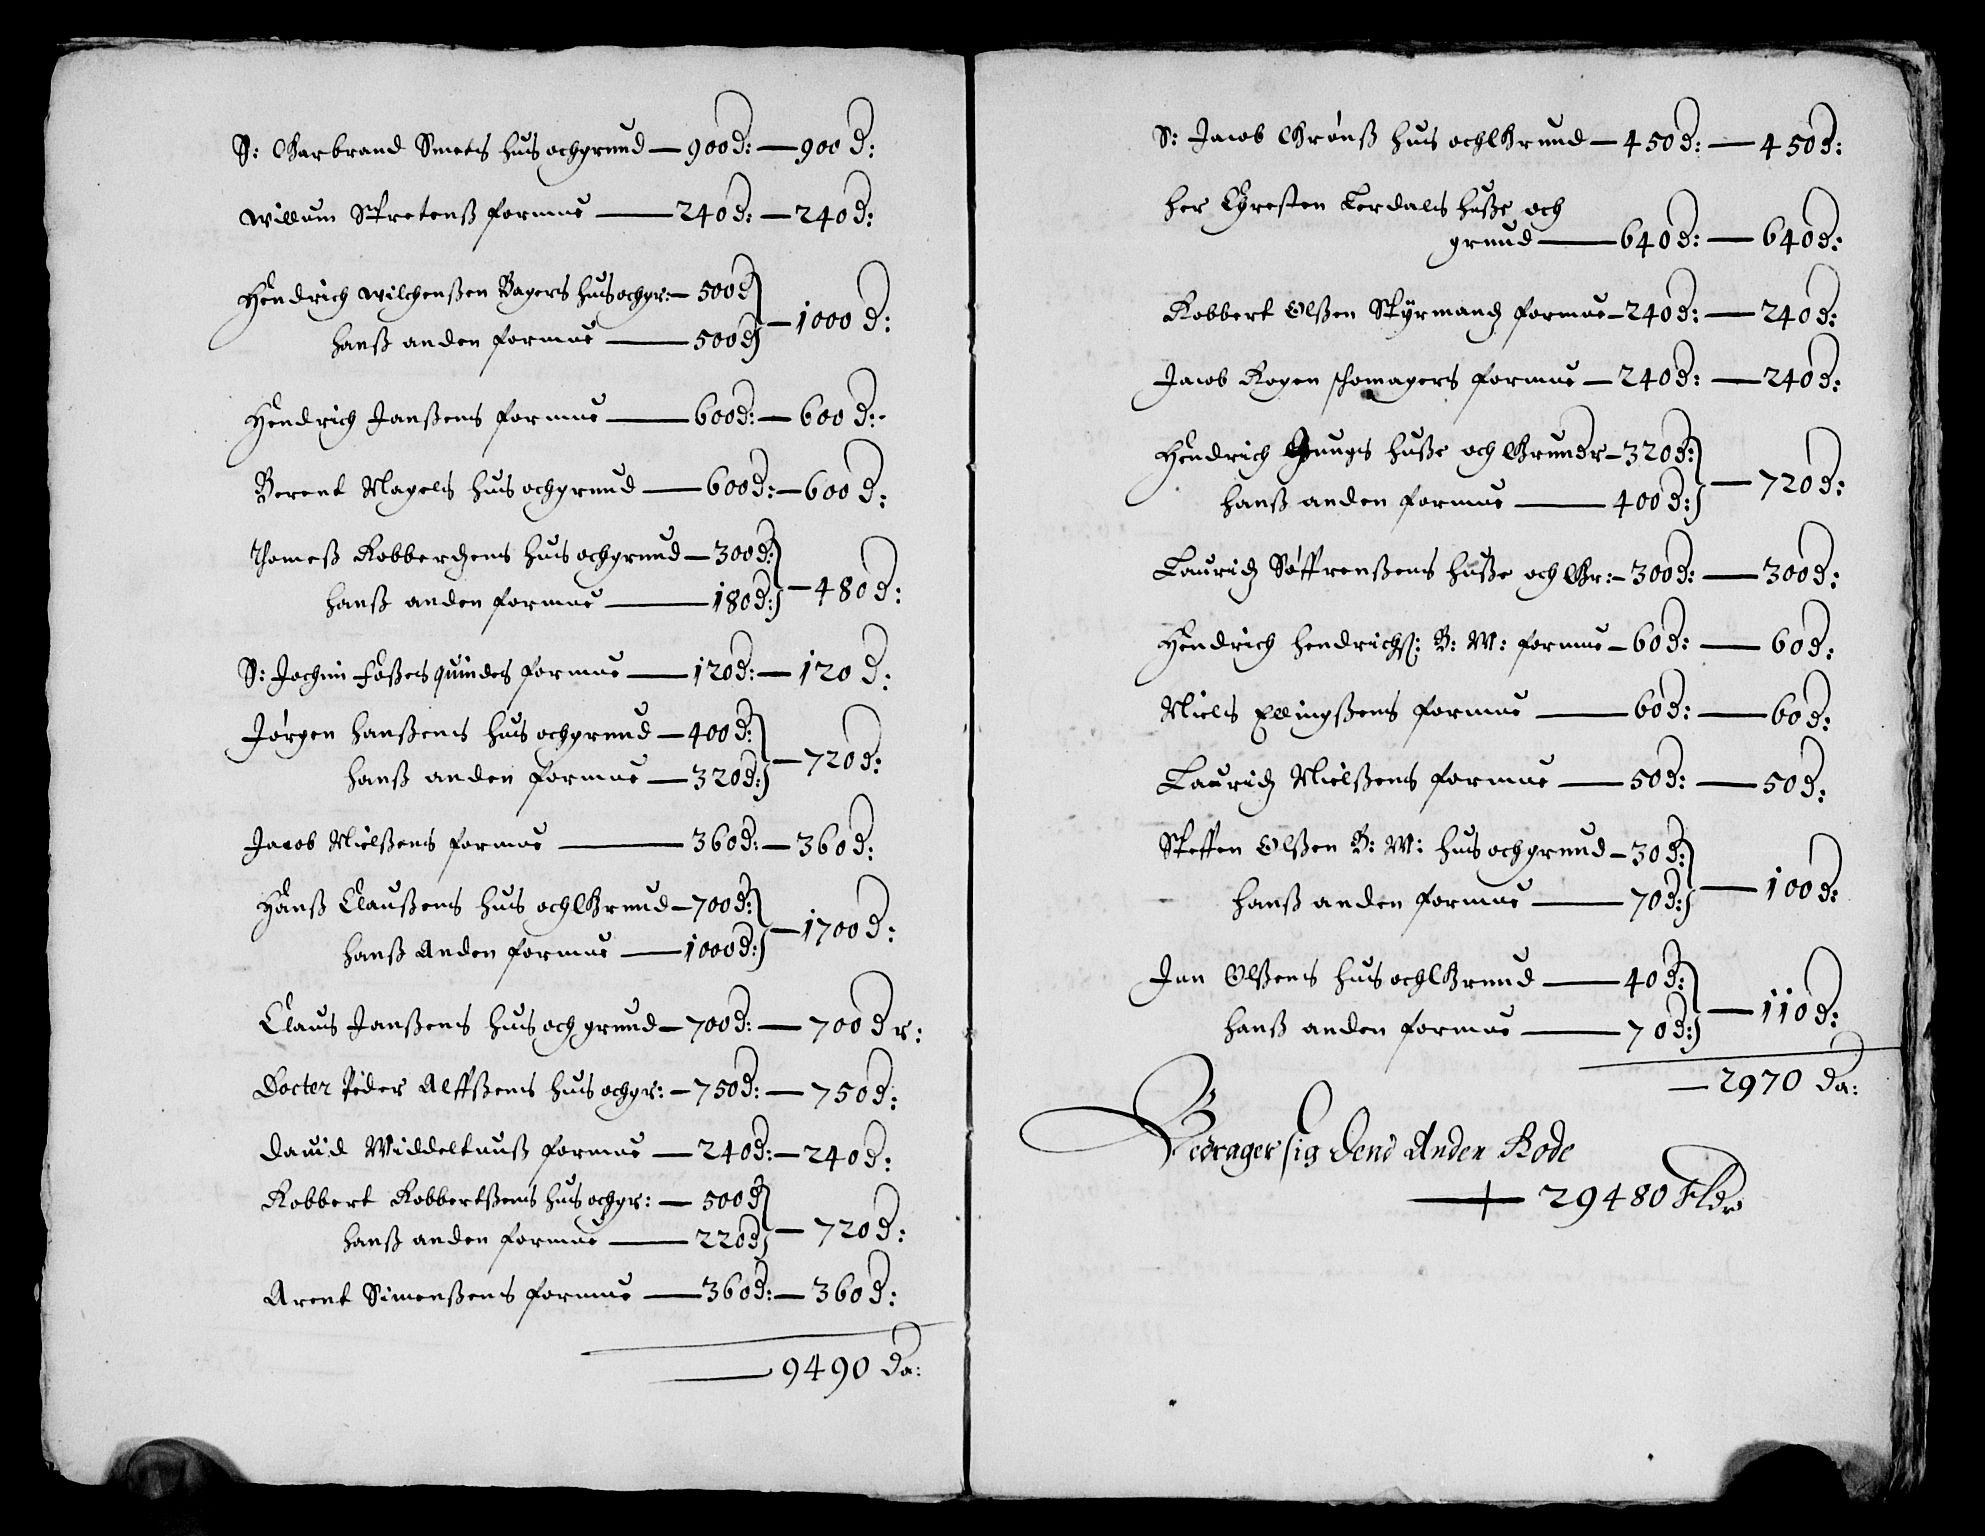 S: Garbrand Smets hus och grund — 900 d: — 900 d:
Willum Stretenß formue — 240 d: — 240 d:
Hendrich Wilchenßen Bagers hus och gr: — 500 d
hanß anden formue — 500 d — 1000 d:
Hendrich Janßens formue — 600 d: — 600 d:
Berent Magels hus och grund — 600 d: — 600 d:
Thomeß Robberdzens hus och grund — 300 d:
hanß anden formue — 180 d: — 480 d:
S: Jochim Foßes quindes formue — 120 d: — 120 d:
Jørgen Hanßens hus och grund — 400 d:
hanß anden formue — 320 d: — 720 d:
Jacob Nielßens formue — 360 d: — 360 d:
Hanß Claußens hus och Grund — 700 d:
hanß Anden formue — 1000 d: — 1700 d:
Claus Janßens hus och grund — 700 d: — 700 dr:
Docter Peder Alffßens hus och gr: — 750 d: — 750 d:
Dauid Middeltuuß formue — 240 d: — 240 d:
Robbert Robbertßens hus och gr: — 500 d
hanß anden formue — 220 d — 720 d:
Arent Simenßens formue — 360 d: — 360 d:
— 9490 da:
S: Jacob Grønß hus och Grund — 450 d: — 450 d:
her Chresten Lerdals huße och
grund — 640 d: — 640 d:
Robbert Olßen Styrmandz formue — 240 d: — 240 d:
Jacob Kogen schomagers formue — 240 d: — 240 d:
Hendrich Junges huße och Grundr — 320 d:
hanß anden formue — 400 d: — 720 d:
Lauridz Søffrenßens huße och Gr: — 300 d: — 300 d:
Hendrich hendrichs: B: M: formue — 60 d: — 60 d:
Niels Ellingßens formue — 60 d: — 60 d:
Lauridz Nielßens formue — 50 d: — 50 d:
Steffen Olßen B: M: hus och grund — 30 d:
hanß anden formue — 70 d: — 100 d:
Jan Olßens hus och Grund — 40 d:
hanß anden formue — 70 d: — 110 d:
— 2970 da:
Bedrager sig dend Anden Rode
— 29480 Rldr